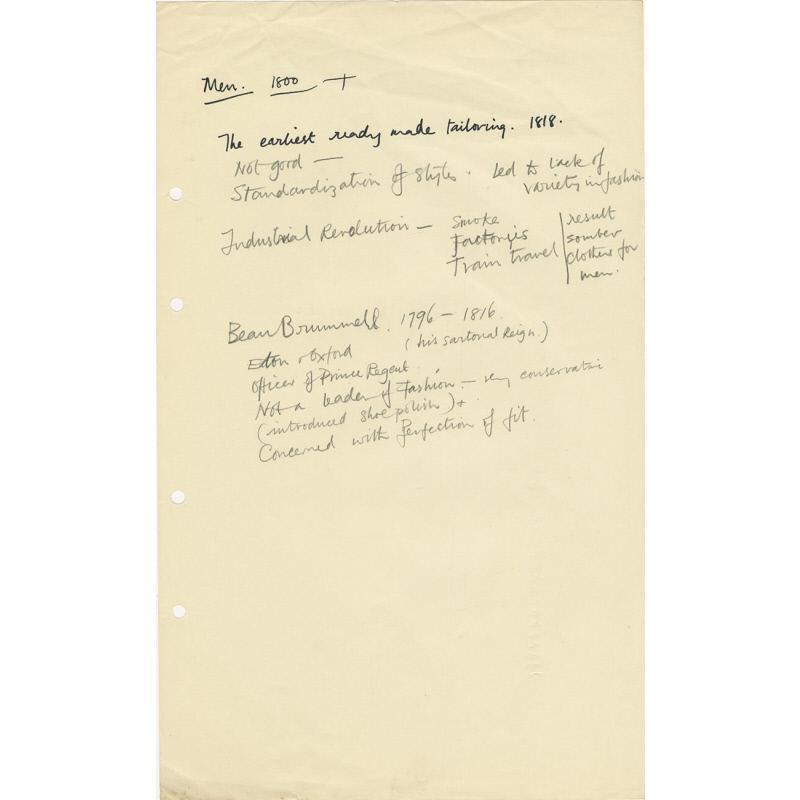 Men. 1800 +
The earliest ready made tailoring. 1818.
Not good —
Standardization of Styles. Led to lack of
variety in fashion
Industrial Revolution — Smoke
Factories
Train travel
result
somber
clothes for
men.
Beau Brummell. 1796 – 1816.
(his sartorial Reign.)
Eton & Oxford
Officer of Prince Regent.
Not a leader of Fashion. — very conservative
(introduced shoe polish) +
Concerned with Perfection of fit.